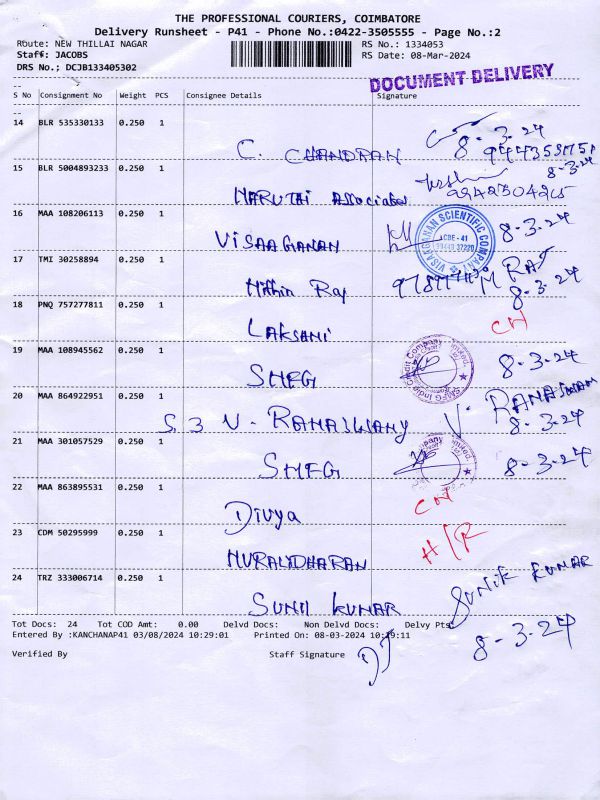 THE PROFESSIONAL COURIERS, COIMBATORE
Delivery Runsheet - P41 - Phone No.:0422-3505555 - Page No.:2
Route: NEW THILLAI NAGAR RS No.: 1334053
Staff: JACOBS RS Date: 08-Mar-2024
DRS No.; DCJB133405302
DOCUMENT DELIVERY
S No Consignment No Weight PCS Consignee Details Signature
14 BLR 535330133 0.250 1
C. CHANDRAN 8-3-24
15 BLR 5004893233 0.250 1 8-3-24
MARUTHI Associates
16 MAA 108206113 0.250 1
VISAAGANAN 8-3-24
VISAAGANAN SCIENTIFIC COMPANY
CBE - 41
17 TMI 30258894 0.250 1
Nithin Raj M RAJ
8-3-24
18 PNQ 757277811 0.250 1
LAKSHMI CN
19 MAA 108945562 0.250 1
SMFG 8-3-24
SMFG India Credit Company Limited.
20 MAA 864922951 0.250 1
S. 3 V. RAMASWAMY V. RAMASWAM
8-3-24
21 MAA 301057529 0.250 1
SMFG 8-3-24
22 MAA 863895531 0.250 1
Divya CN
23 CDM 50295999 0.250 1
MURALIDHARAN H/R
24 TRZ 333006714 0.250 1
SUNIL KUMAR SUNIL KUMAR
8-3-24
Tot Docs: 24 Tot COD Amt: 0.00 Delvd Docs: Non Delvd Docs: Delvy Pts:
Entered By :KANCHANAP41 03/08/2024 10:29:01 Printed On: 08-03-2024 10:29:11
Verified By Staff Signature